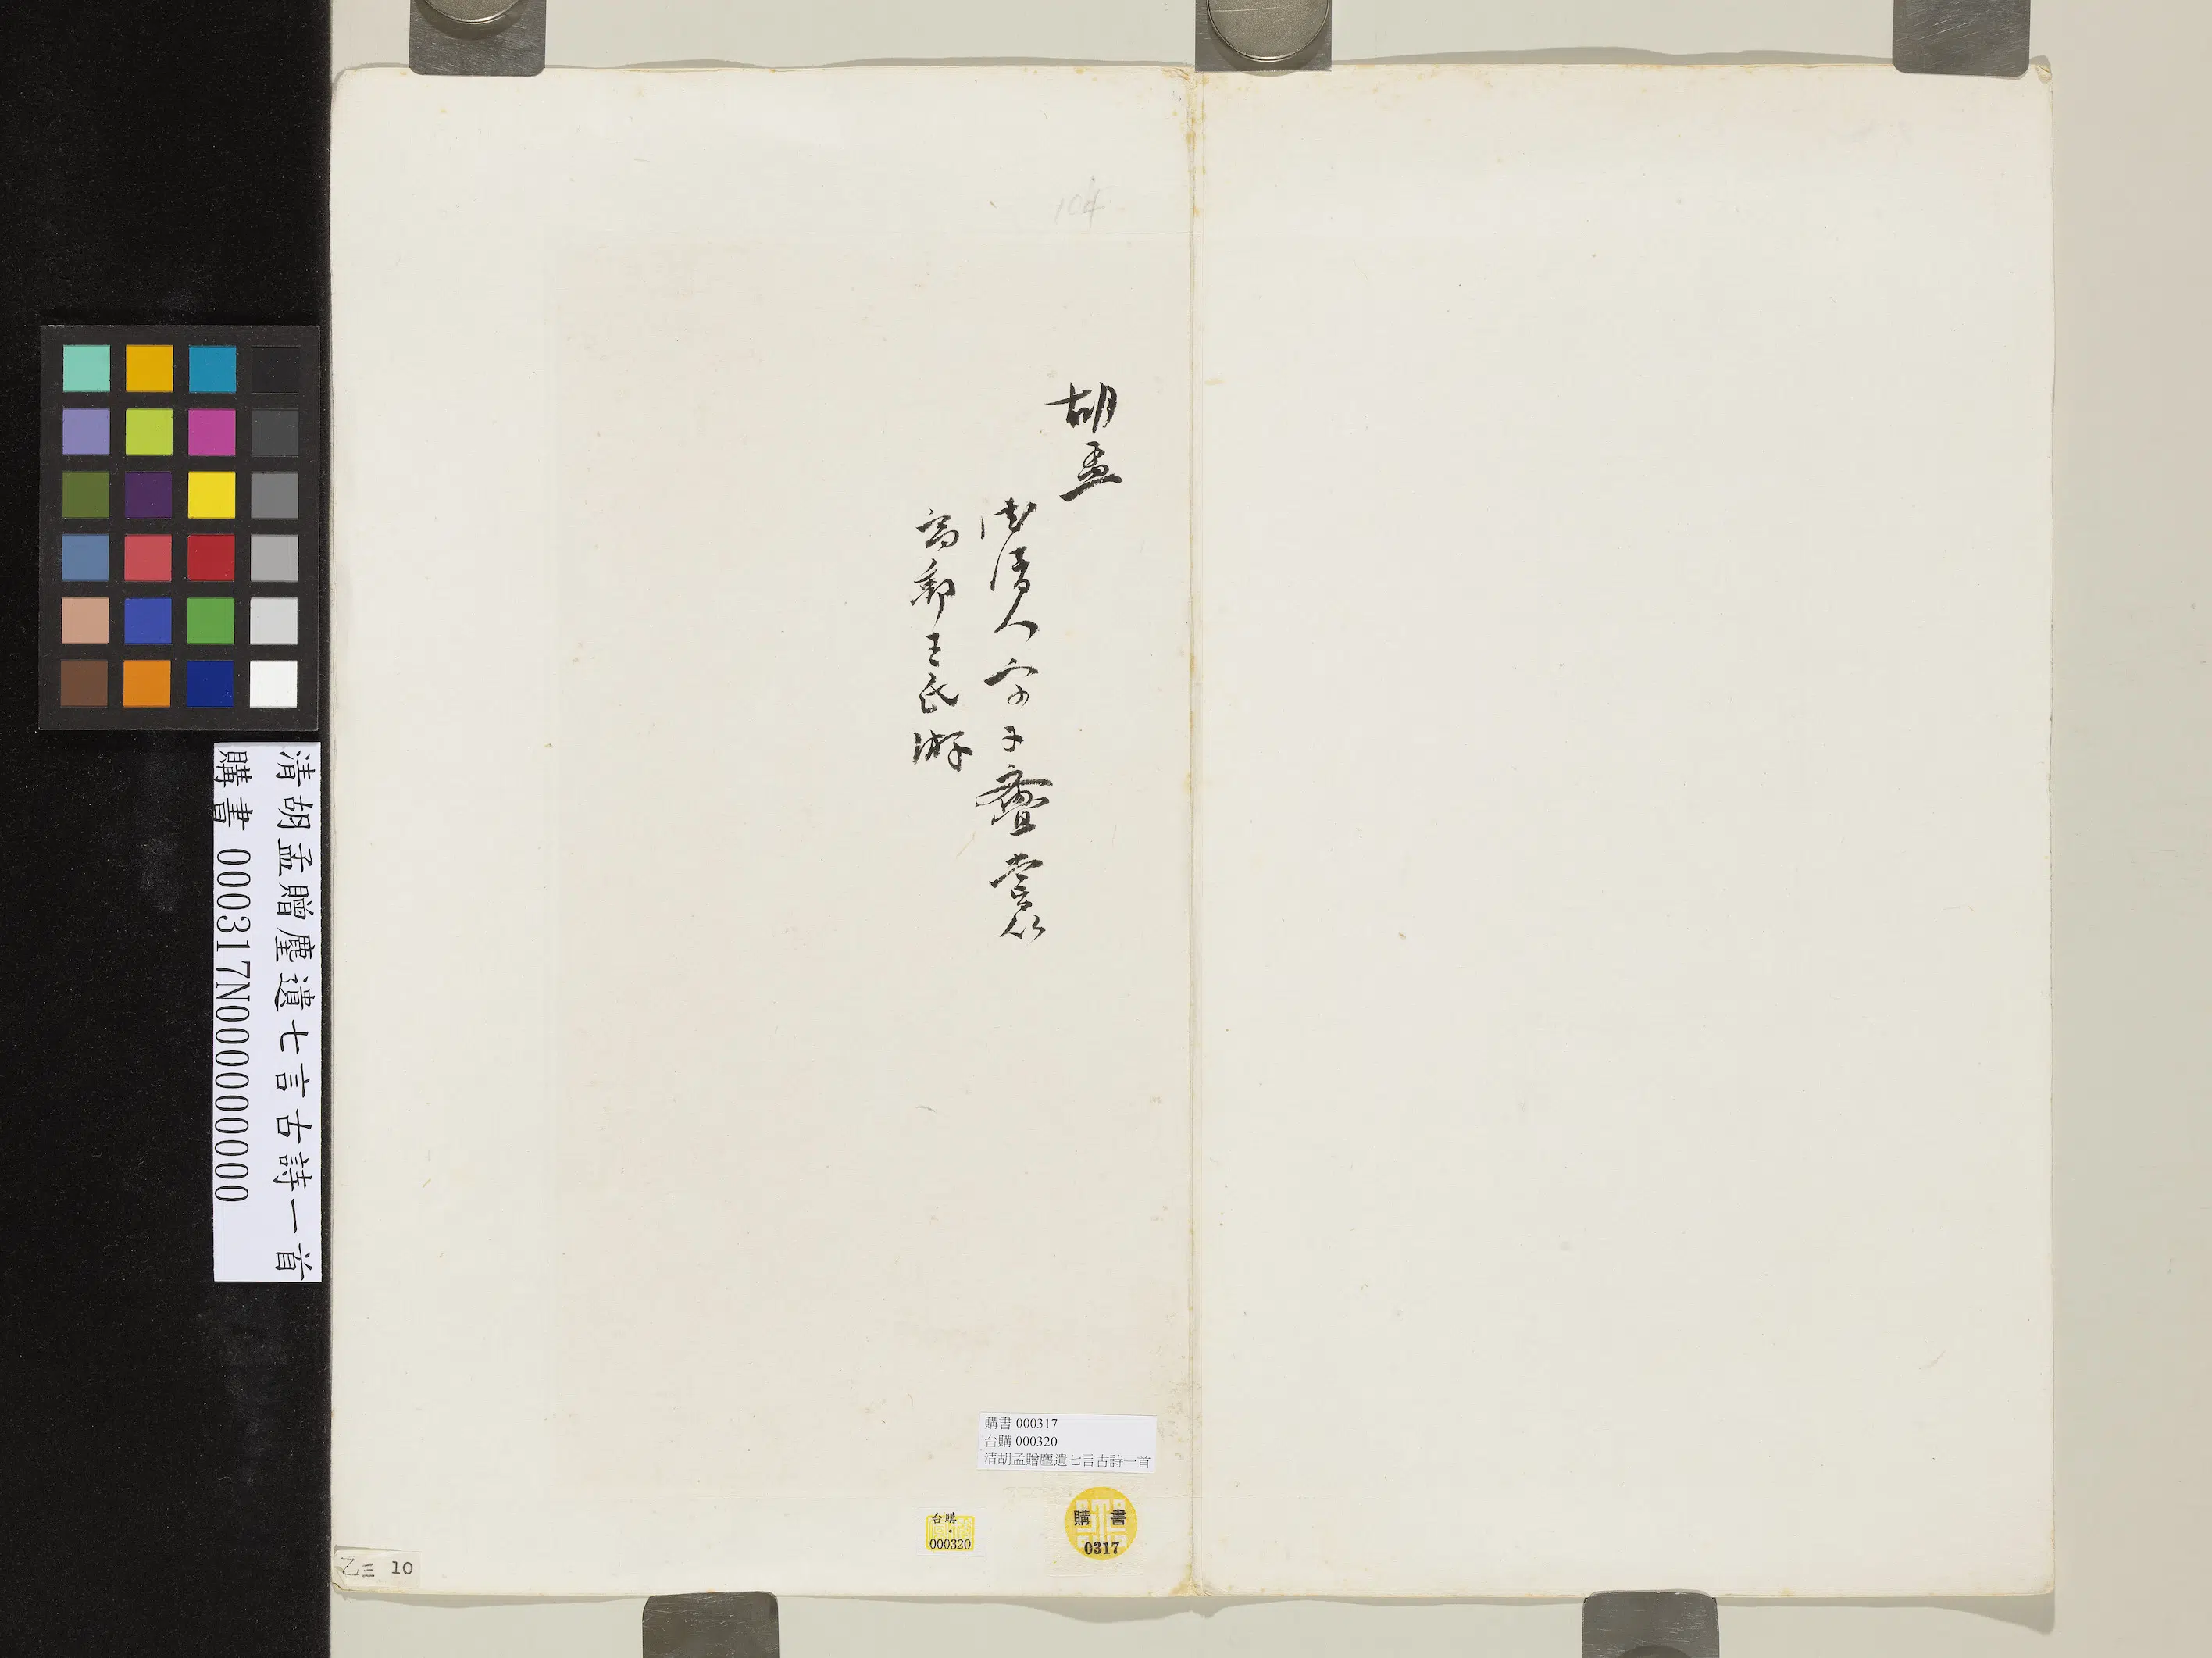 胡孟
德清人字子 嘗从
高郵王氏游
清胡孟贈塵遺七言古詩一首
購書 000317N000000000
購書 000317
台購 000320
清胡孟贈塵遺七言古詩一首
台購
000320
購書
0317
乙三 10